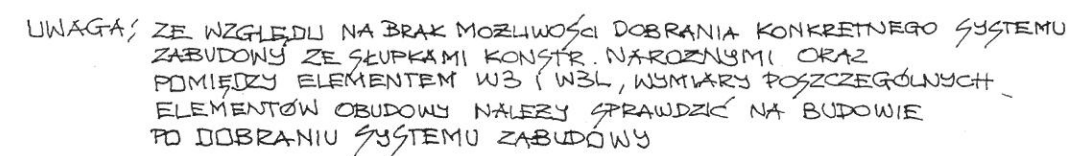 UWAGA! ZE WZGLĘDU NA BRAK MOŻLIWOŚCI DOBRANIA KONKRETNEGO SYSTEMU
ZABUDOWY ZE SŁUPKAMI KONSTR. NAROŻNYMI ORAZ
POMIĘDZY ELEMENTEM W3 I W3L, WYMIARY POSZCZEGÓLNYCH
ELEMENTÓW OBUDOWY NALEŻY SPRAWDZIĆ NA BUDOWIE
PO DOBRANIU SYSTEMU ZABUDOWY